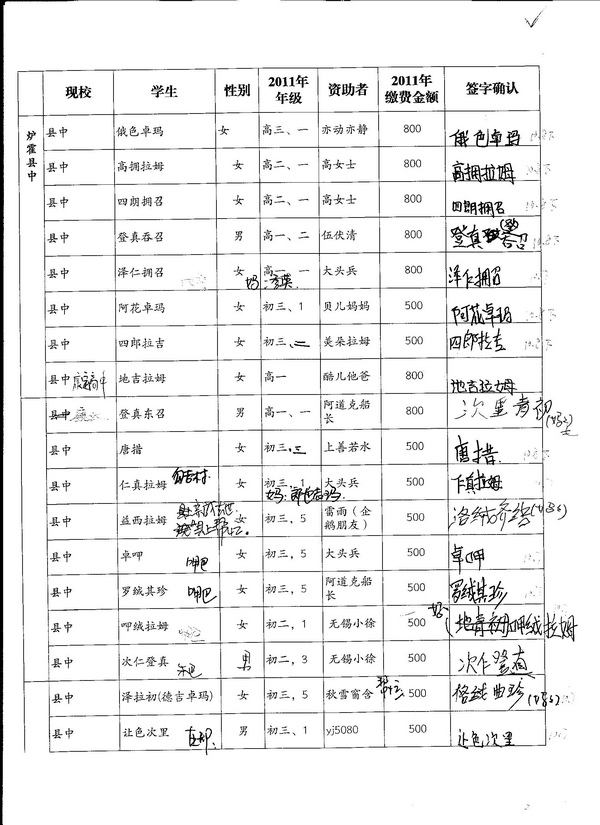 现校 学生 性别 2011年年级 资助者 2011年缴费金额 签字确认
炉霍县中
县中 俄色卓玛 女 高三、一 亦动亦静 800 俄色卓玛
县中 高拥拉姆 女 高二、一 高女士 800 高拥拉姆
县中 四朗拥召 女 高二、一 高女士 800 四朗拥召
县中 登真吞召 男 高一、二 伍伏清 800 登真吞召
县中 泽仁拥召 女 高一、一 大头兵 800 泽仁拥召
县中 阿花卓玛 女 初三、1 贝儿妈妈 500 阿花卓玛
县中 四郎拉吉 女 初三、二 美朵拉姆 500 四郎拉吉
县中 地吉拉姆 女 高一 酷儿他爸 800 地吉拉姆
县中 登真东召 男 高一、一 阿道克船长 800
县中 唐措 女 初三、三 上善若水 500 唐措
县中 仁真拉姆 女 初三、1 大头兵 500
县中 益西拉姆 女 初三，5 雷雨（企鹅朋友） 500
县中 卓呷 呷巴 女 初三，5 大头兵 500 卓呷
县中 罗绒其珍 呷巴 女 初三，5 阿道克船长 500 罗绒其珍
县中 呷绒拉姆 女 初二，1 无锡小徐 500 呷绒拉姆
县中 次仁登真 男 初二，3 无锡小徐 500
县中 泽拉初(德吉卓玛) 女 初三，5 秋雪窗含 500
县中 让色次里 男 初三、1 yj5080 500 让色次里